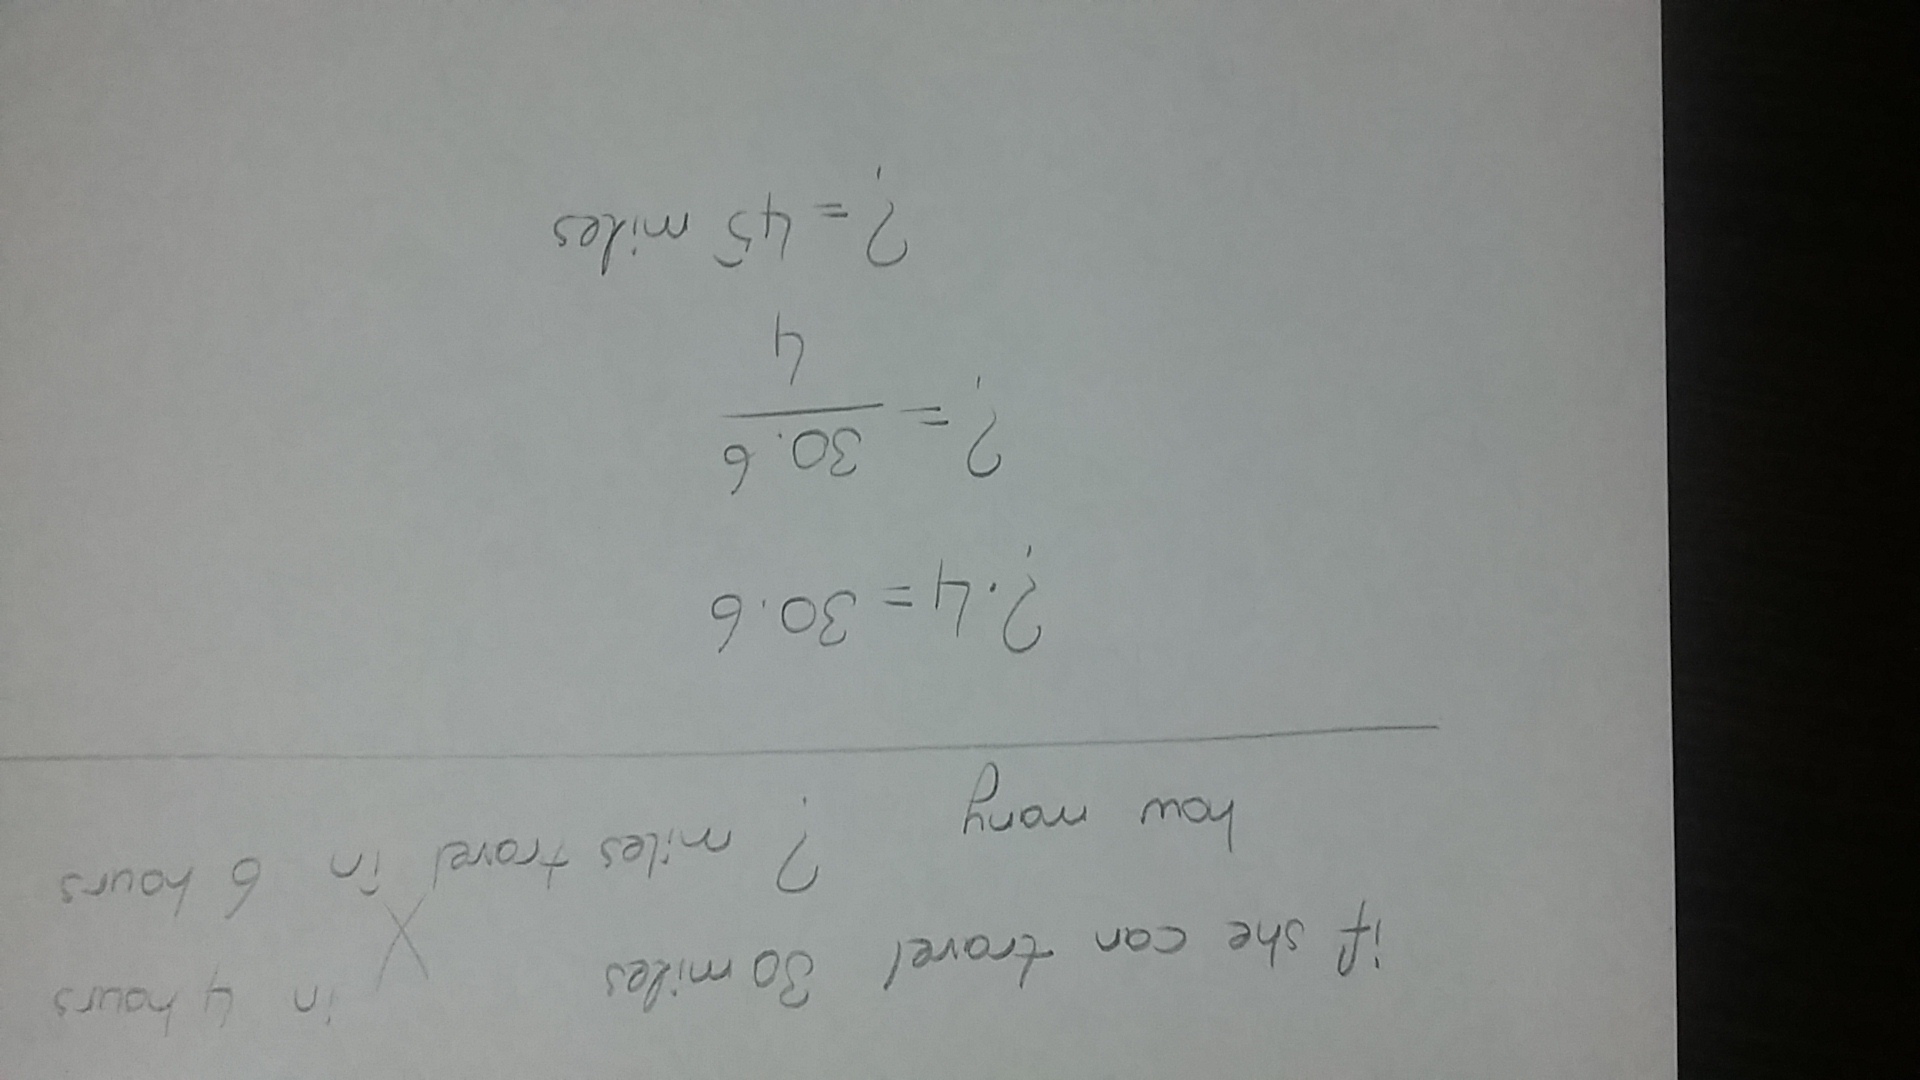 if she can travel 30 miles in 4 hours
how many ? miles travel in 6 hours
?.4 = 30.6
? = 30.6
4
? = 45 miles